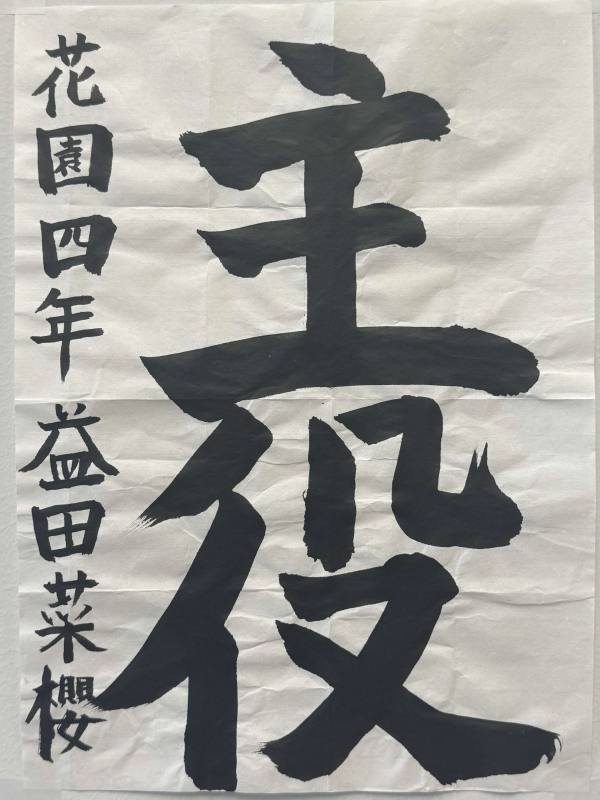 主役
花園四年 益田菜櫻